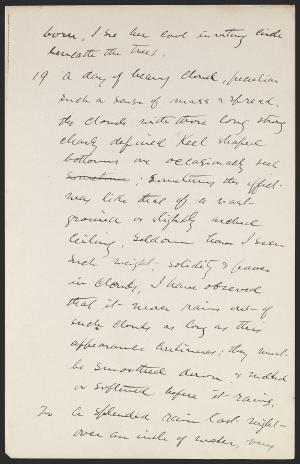 born, I see her cool inviting circle
beneath the trees.
19 A day of heavy cloud, peculiar
such a sense of mass & spread.
The clouds with those long strong
clearly defined keel shaped
bottoms one occasionally sees
sometimes; sometimes the effect
was like that of a vast
groined or slightly arched
ceiling, Seldom have I seen
such weight, solidity & power
in clouds, I have observed
that it never rains out of
such clouds as long as this
appearance continues; they must
be smoothed down & melted
or softened before it rains,
20 A splended rain last night
over an inch of water, very